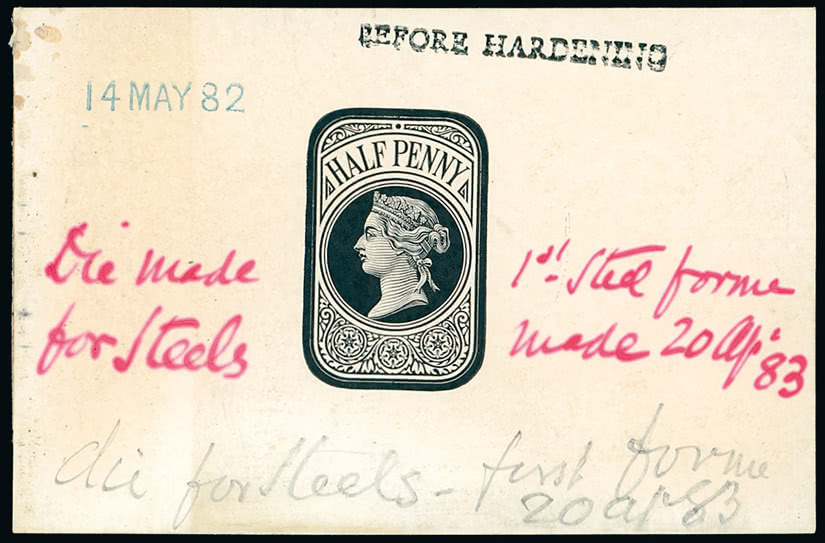 BEFORE HARDENING
14 MAY 82
HALF PENNY
Die made
for Steels
1st Steel forme
made 20 Apl 83
die for Steels - first forme
20 apl 83